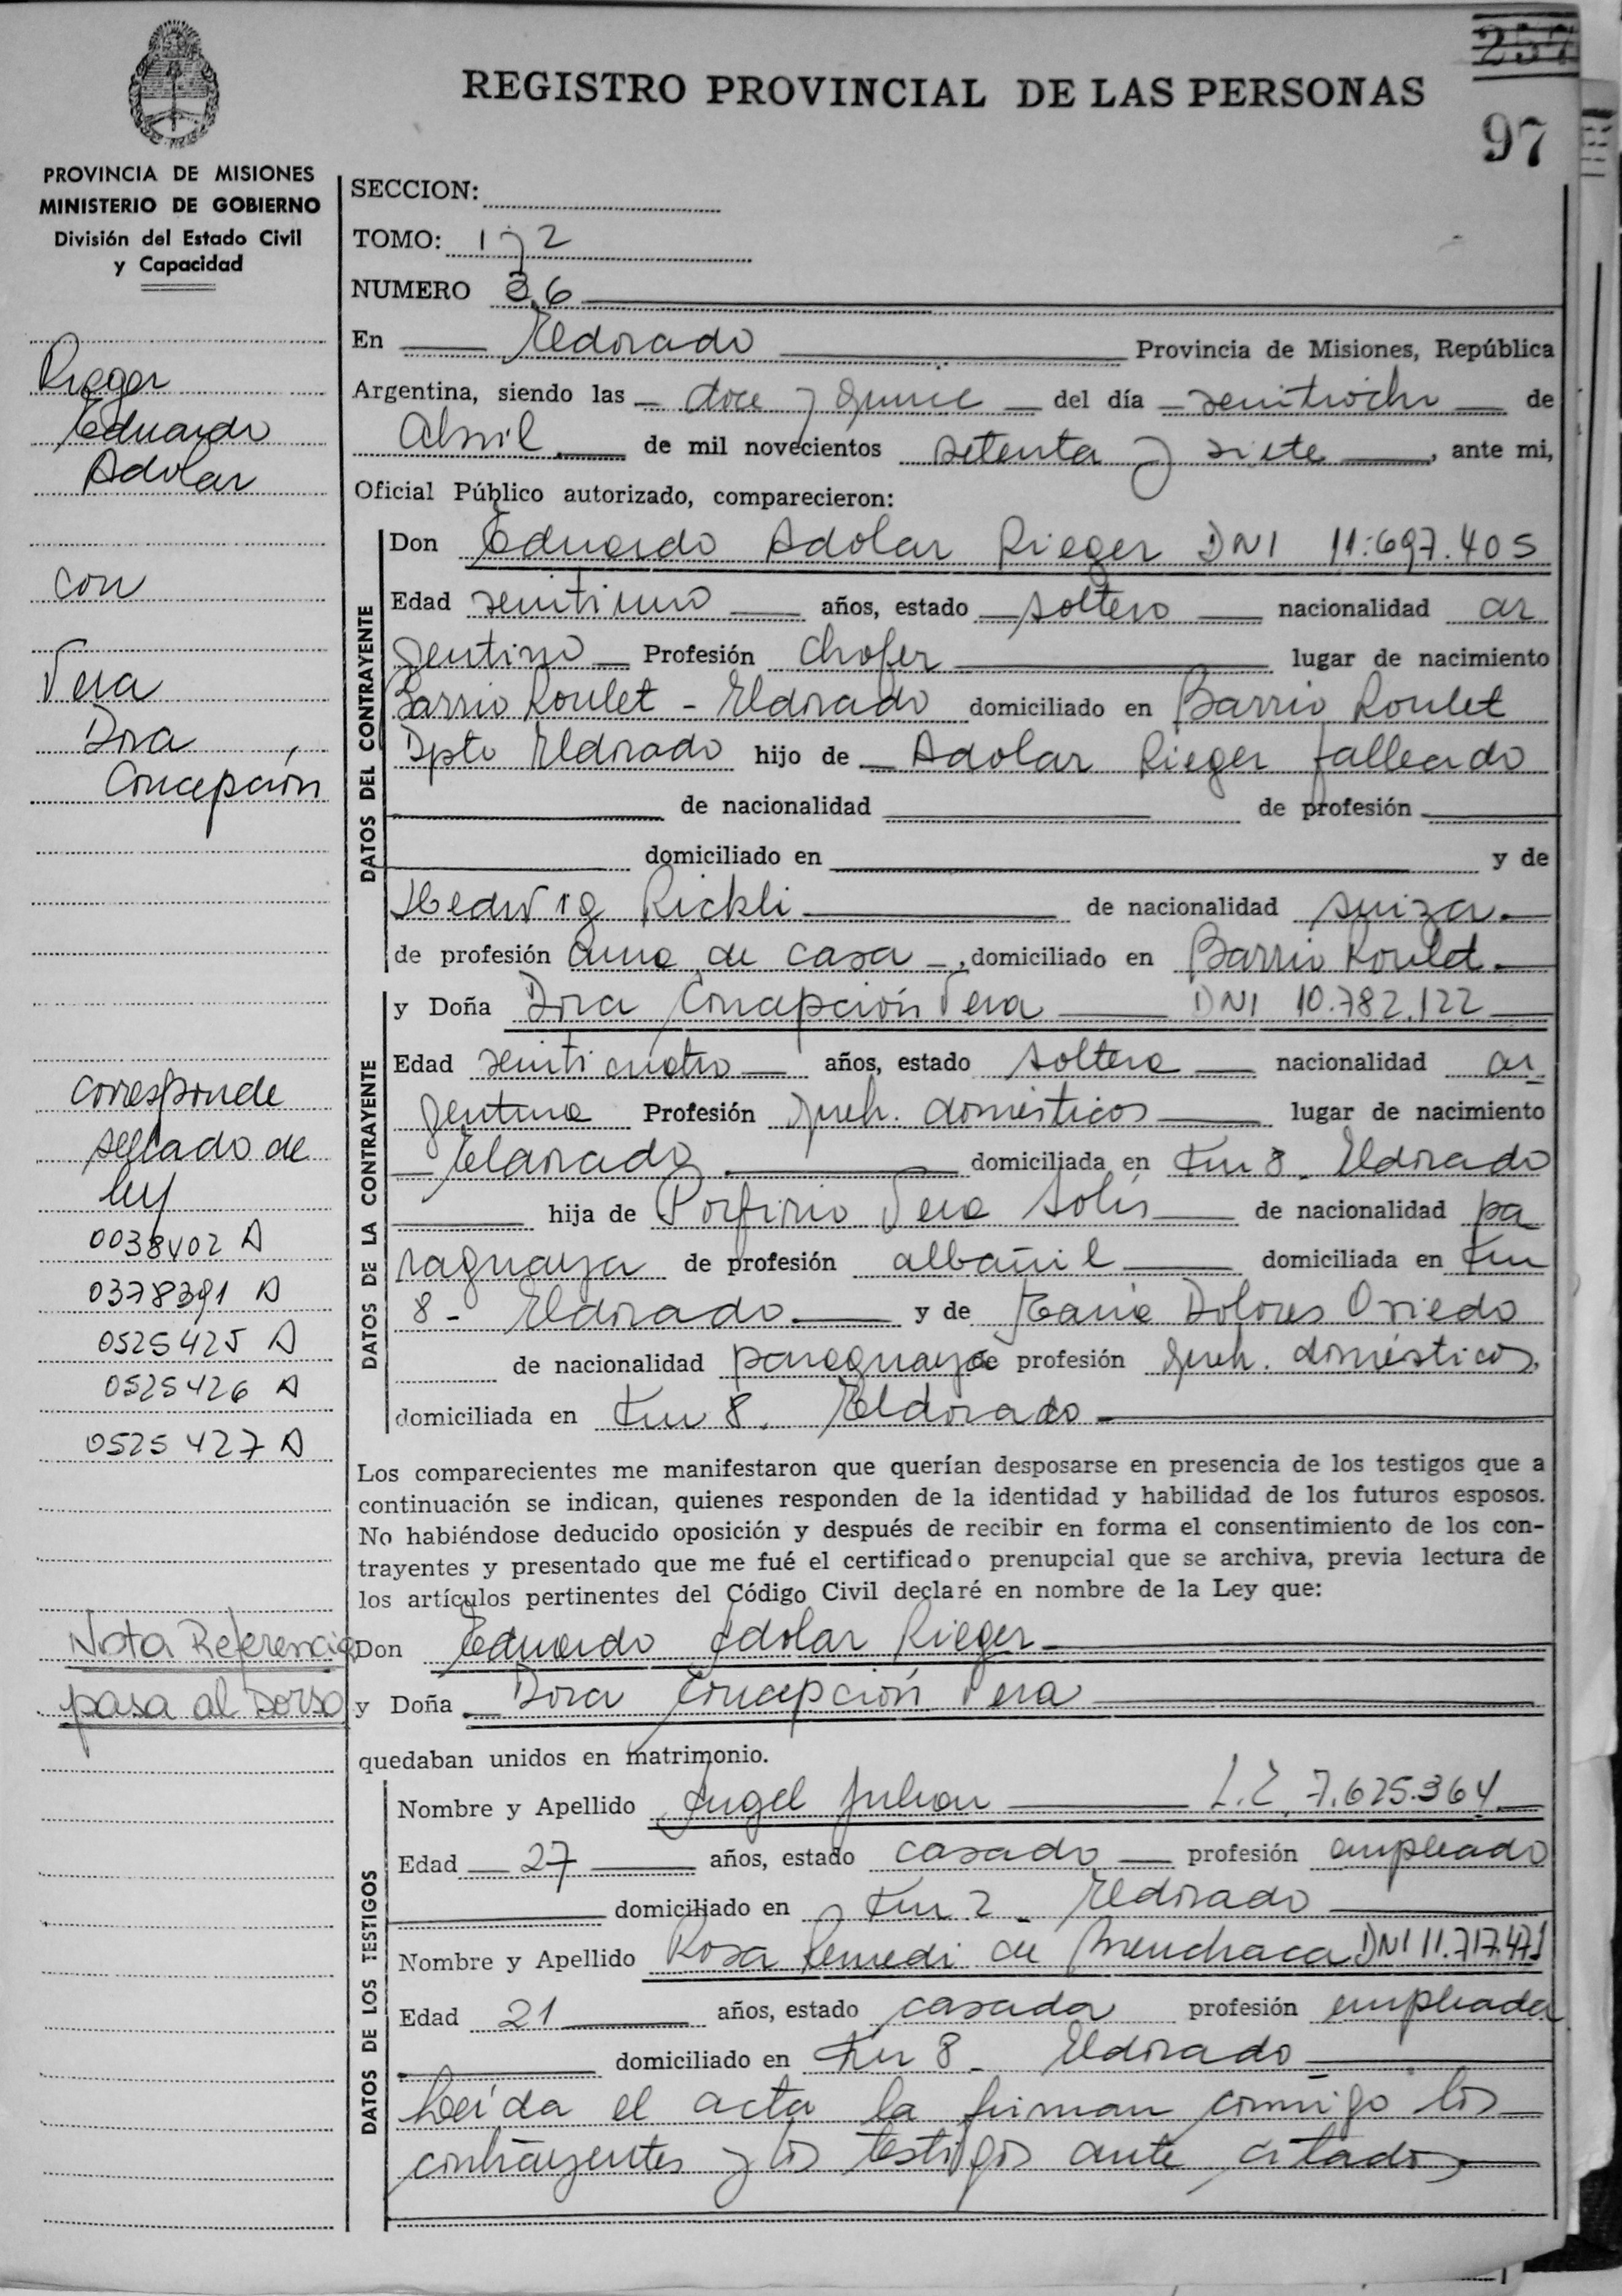 257
REGISTRO PROVINCIAL DE LAS PERSONAS
97
PROVINCIA DE MISIONES
MINISTERIO DE GOBIERNO
División del Estado Civil
y Capacidad
Rieger
Eduardo
Adolar
con
Vera
Dora
Concepción
corresponde
sellado de
ley
0038402 A
0378391 A
0525425 A
0525426 A
0525427 A
Nota Referencia
pasa al Dorso
SECCION:
TOMO: 1 y 2
NUMERO 36
En Eldorado Provincia de Misiones, República
Argentina, siendo las doce y quince del día veintiocho de
Abril de mil novecientos setenta y siete, ante mi,
Oficial Público autorizado, comparecieron:
DATOS DEL CONTRAYENTE
Don Eduardo Adolar Rieger DNI 11.697.405
Edad veintiuno años, estado soltero nacionalidad ar
gentino Profesión chofer lugar de nacimiento
Barrio Roulet - Eldorado domiciliado en Barrio Roulet
Dpto Eldorado hijo de Adolar Rieger fallecido
de nacionalidad de profesión
domiciliado en y de
Hedwig Rickli de nacionalidad suiza
de profesión ama de casa, domiciliado en Barrio Roulet
DATOS DE LA CONTRAYENTE
y Doña Dora Concepción Vera DNI 10.782.122
Edad veinticuatro años, estado soltera nacionalidad ar
gentina Profesión queh. domésticos lugar de nacimiento
Eldorado domiciliada en Km 8 Eldorado
hija de Porfirio Vera Solís de nacionalidad pa
raguaya de profesión albañil domiciliada en Km
8 - Eldorado y de María Dolores Oviedo
de nacionalidad paraguaya de profesión queh. domésticos,
domiciliada en Km 8. Eldorado
Los comparecientes me manifestaron que querían desposarse en presencia de los testigos que a
continuación se indican, quienes responden de la identidad y habilidad de los futuros esposos.
No habiéndose deducido oposición y después de recibir en forma el consentimiento de los con-
trayentes y presentado que me fué el certificado prenupcial que se archiva, previa lectura de
los artículos pertinentes del Código Civil declaré en nombre de la Ley que:
Don Eduardo Adolar Rieger
y Doña Dora Concepción Vera
quedaban unidos en matrimonio.
DATOS DE LOS TESTIGOS
Nombre y Apellido Angel Julian L.E 7.625.364
Edad 27 años, estado casado profesión empleado
domiciliado en Km 2 - Eldorado
Nombre y Apellido Rosa Remedi de Menchaca DNI 11.717.471
Edad 21 años, estado casada profesión empleada
domiciliado en Km 8 - Eldorado
Leída el acta la firman conmigo los
contrayentes y los testigos ante citados